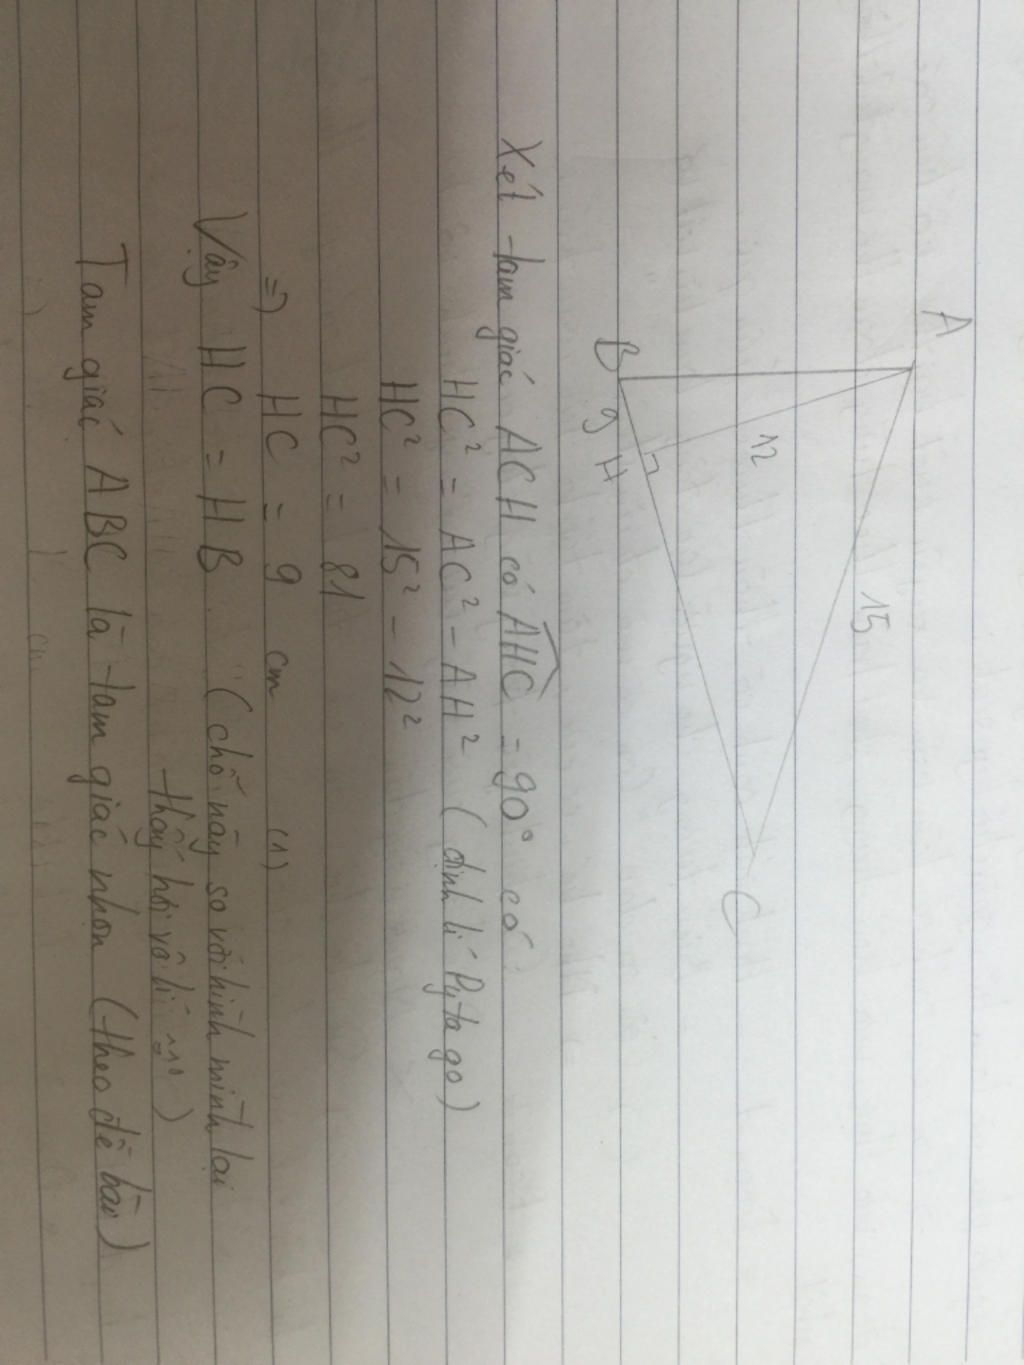 A
12
15
B
9
H
C
Xét tam giác ACH có AHC = 90° có
HC² = AC² - AH² (định lí Pytago)
HC² = 15² - 12²
HC² = 81
=> HC = 9 cm (1)
Vậy HC = HB (chỗ này so với hình mình lại
thấy hơi vô lí
Tam giác ABC là tam giác nhọn (theo đề bài)